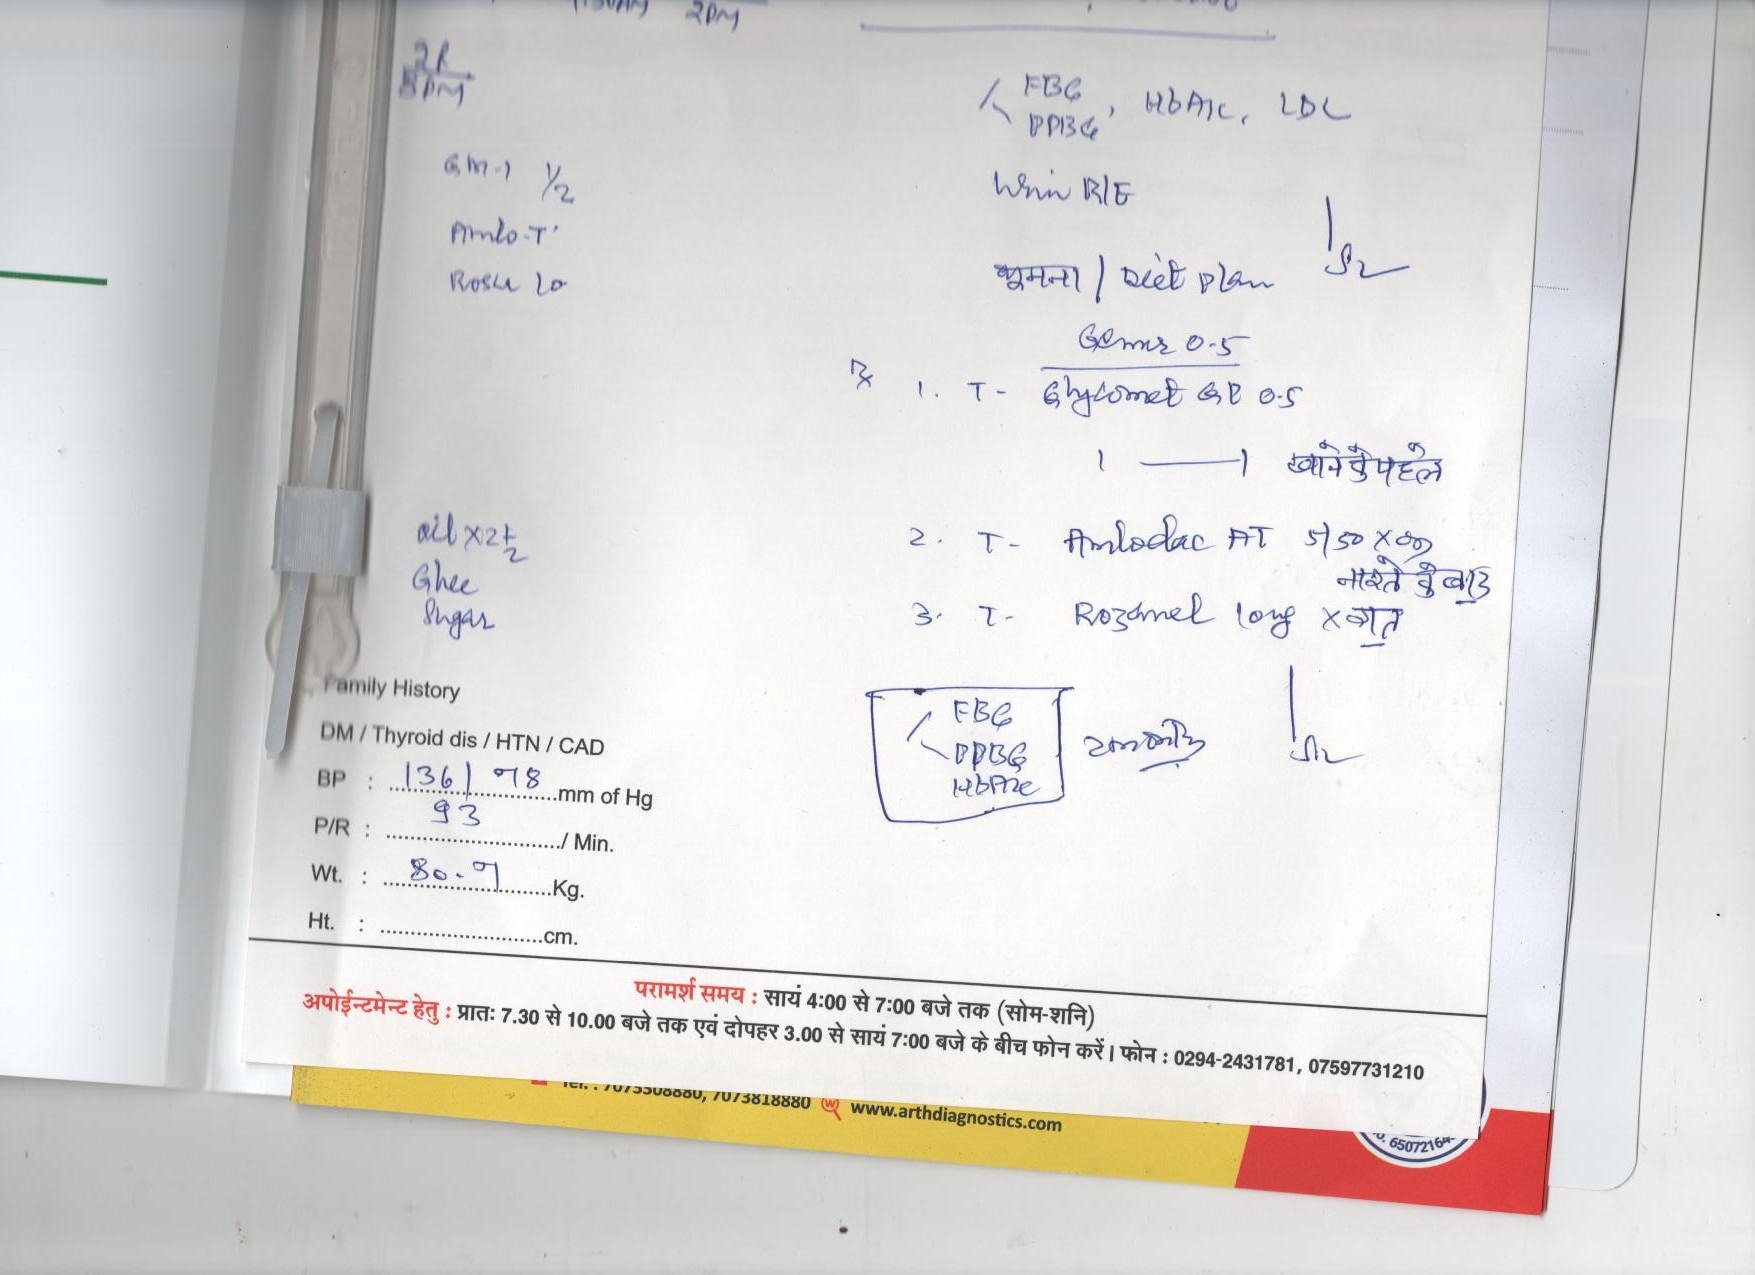 2PM
2R
8PM
GM-1 1/2
Amlo-T
Rosu 10
FBG
PPBG, HbA1c, LDL
Urin R/E
घूमना / Diet Plan
Gemer 0.5
Rx 1. T- Glycomet GP 0.5
1 — 1 खाने के पहले
2. T- Amlodac AT 5/50 X
नाश्ते के बाद
3. T- Rozamel 10mg X रात
oil x 2 1/2
Ghee
Sugar
FBG
PPBG
HbA1c
Family History
DM / Thyroid dis / HTN / CAD
BP : 136/78 mm of Hg
P/R : 93 / Min.
Wt. : 80.7 Kg.
Ht. : ........................... cm.
परामर्श समय : सायं 4:00 से 7:00 बजे तक (सोम-शनि)
अपोईन्टमेन्ट हेतु : प्रातः 7.30 से 10.00 बजे तक एवं दोपहर 3.00 से सायं 7:00 बजे के बीच फोन करें। फोन : 0294-2431781, 07597731210
Tel. : 7073308880, 7073818880 www.arthdiagnostics.com